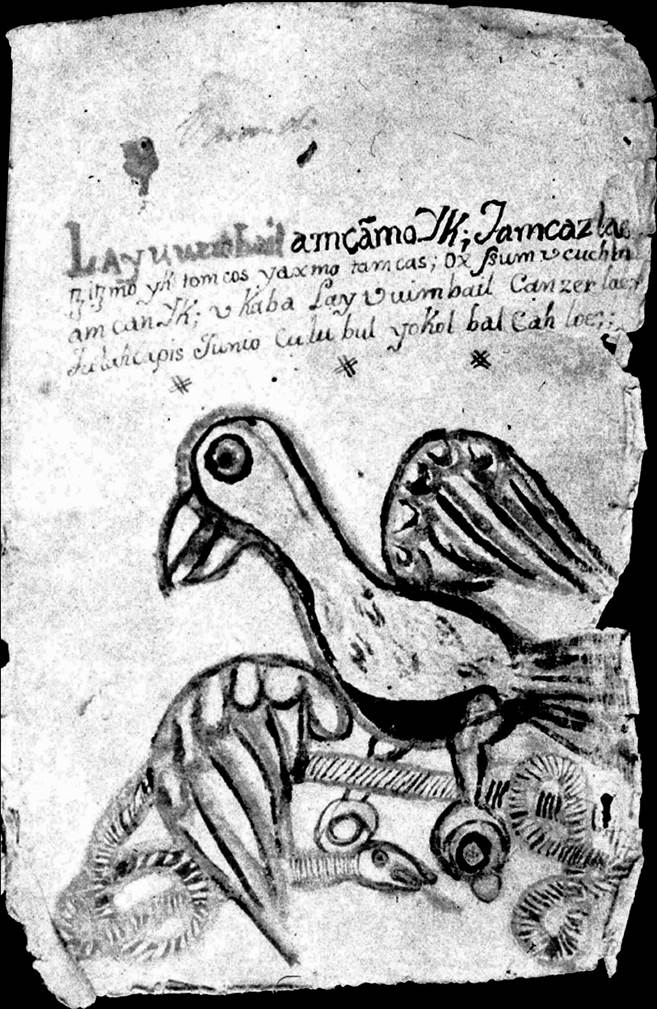 Lay u uimbail amcãmo Yk; Tamcaz lae
tzitz mo yk tom cos, yaxmo tamcas; Ox ssum v cuchln
am can Yk; v Kaba Lay v uimbail Canzer lae;
Julahcapis Junio Culu bul yokol bal Cah loe;;